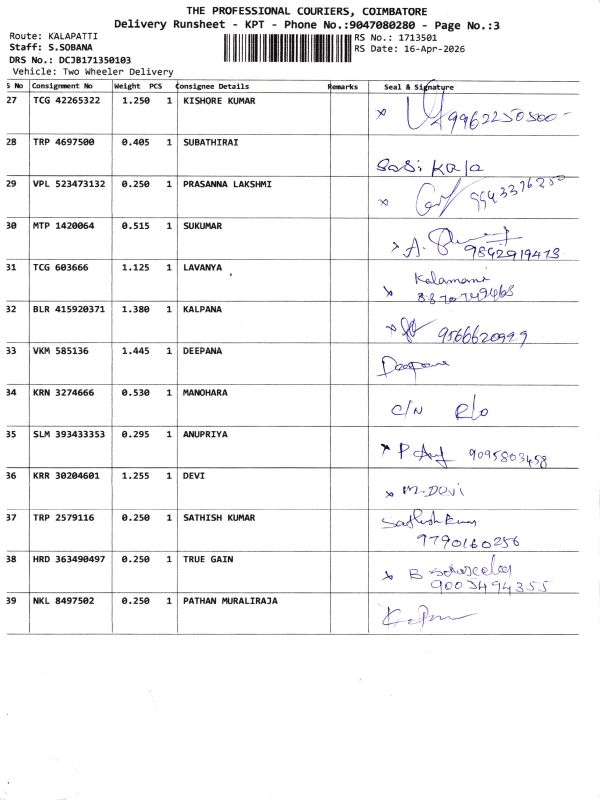 THE PROFESSIONAL COURIERS, COIMBATORE
Delivery Runsheet - KPT - Phone No.:9047080280 - Page No.:3
Route: KALAPATTI
RS No.: 1713501
Staff: S.SOBANA
RS Date: 16-Apr-2026
DRS No.: DCJB171350103
Vehicle: Two Wheeler Delivery
S No Consignment No Weight PCS Consignee Details Remarks Seal & Signature
27 TCG 42265322 1.250 1 KISHORE KUMAR
x 9962250500-
28 TRP 4697500 0.405 1 SUBATHIRAI
Sasi kala
29 VPL 523473132 0.250 1 PRASANNA LAKSHMI
x
30 MTP 1420064 0.515 1 SUKUMAR
x A. 9842919473
31 TCG 603666 1.125 1 LAVANYA
Kalamani
x
32 BLR 415920371 1.380 1 KALPANA
x 9566620999
33 VKM 585136 1.445 1 DEEPANA
Deepana
34 KRN 3274666 0.530 1 MANOHARA
C/N R/o
35 SLM 393433353 0.295 1 ANUPRIYA
x P. 9095803458
36 KRR 30204601 1.255 1 DEVI
x M-DEVI
37 TRP 2579116 0.250 1 SATHISH KUMAR
Sathish Kumar
9790160256
38 HRD 363490497 0.250 1 TRUE GAIN
x B
9003494355
39 NKL 8497502 0.250 1 PATHAN MURALIRAJA